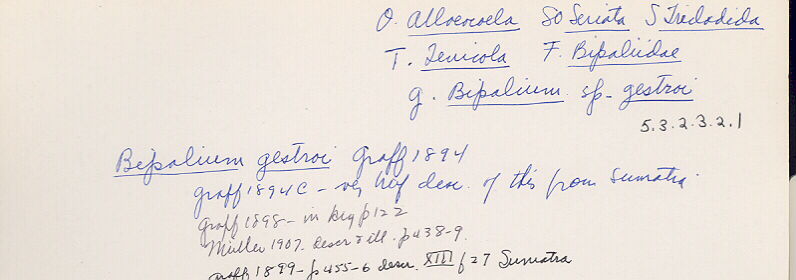 O. Alloeocoela SO Seriata S Tricladida
T. Terricola F. Bipaliidae
g. Bipalium sp- gestroi
5.3.2.3.2.1
Bipalium gestroi Graff 1894
Graff 1894C - very brief desc. of this from Sumatra
Graff 1898 - in key p122
Müller 1907. descr & ill. p438-9.
Graff 1899 - p455-6 descr. XIII f27 Sumatra